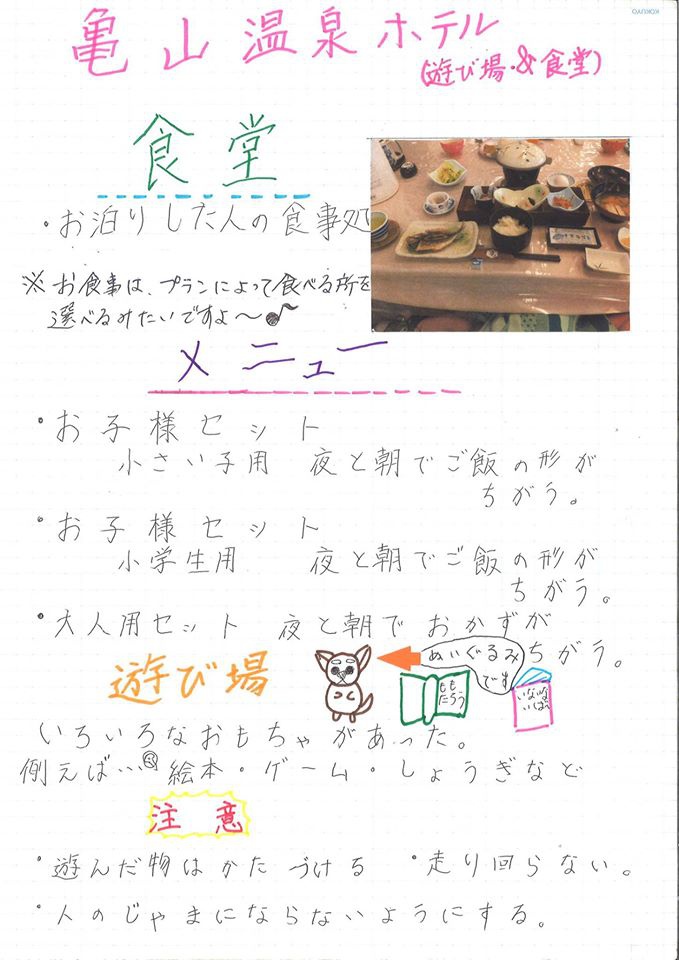 KOKUYO
亀山温泉ホテル
(遊び場・&食堂)
食堂
・お泊りした人の食事処
※お食事は、プランによって食べる所を
選べるみたいですよ～♪
メニュー
・お子様セット
小さい子用 夜と朝でご飯の形が
ちがう。
・お子様セット
小学生用 夜と朝でご飯の形が
ちがう。
・大人用セット 夜と朝で おかずが
ちがう。
遊び場
ぬいぐるみ
です
もも
たろう
いないない
いなどいろいろなおもちゃがあった。
例えば…絵本・ゲーム・しょうぎなど
注意
・遊んだ物はかたづける ・走り回らない。
・人のじゃまにならないようにする。